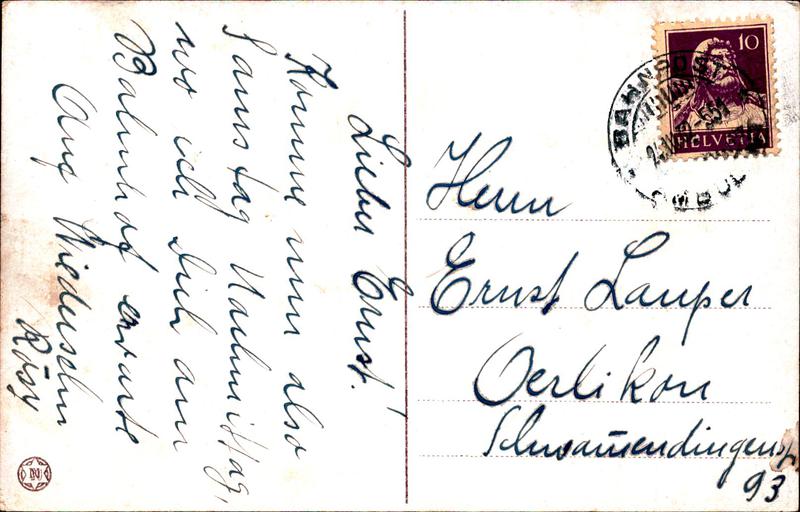 Lieber Ernst!
Komme nun also
Samstag Nachmittag,
wo ich Dich am
Bahnhof erwarte
Auf Wiedersehn
Rösy
10
HELVETIA
BAHNPOST
AMBUL
Herrn
Ernst Lauper
Oerlikon
Schwamendingenst.
93
N